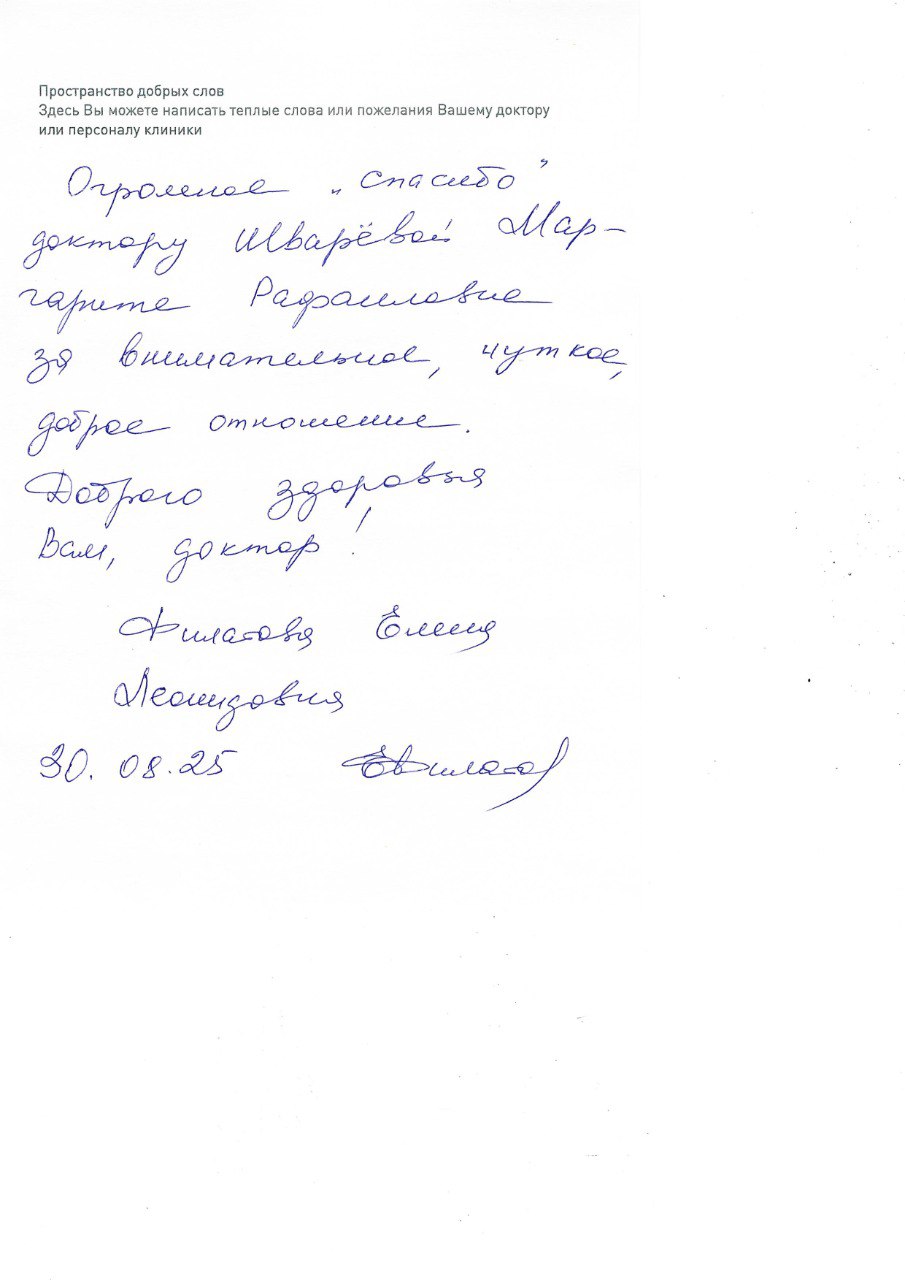 Пространство добрых слов
Здесь Вы можете написать теплые слова или пожелания Вашему доктору
или персоналу клиники
Огромное „спасибо”
доктору Шварёвой Мар-
гарите Рафаиловне
за внимательное, чуткое,
доброе отношение.
Доброго здоровья
Вам, доктор!
Филатова Елена
Леонидовна
30.08.25